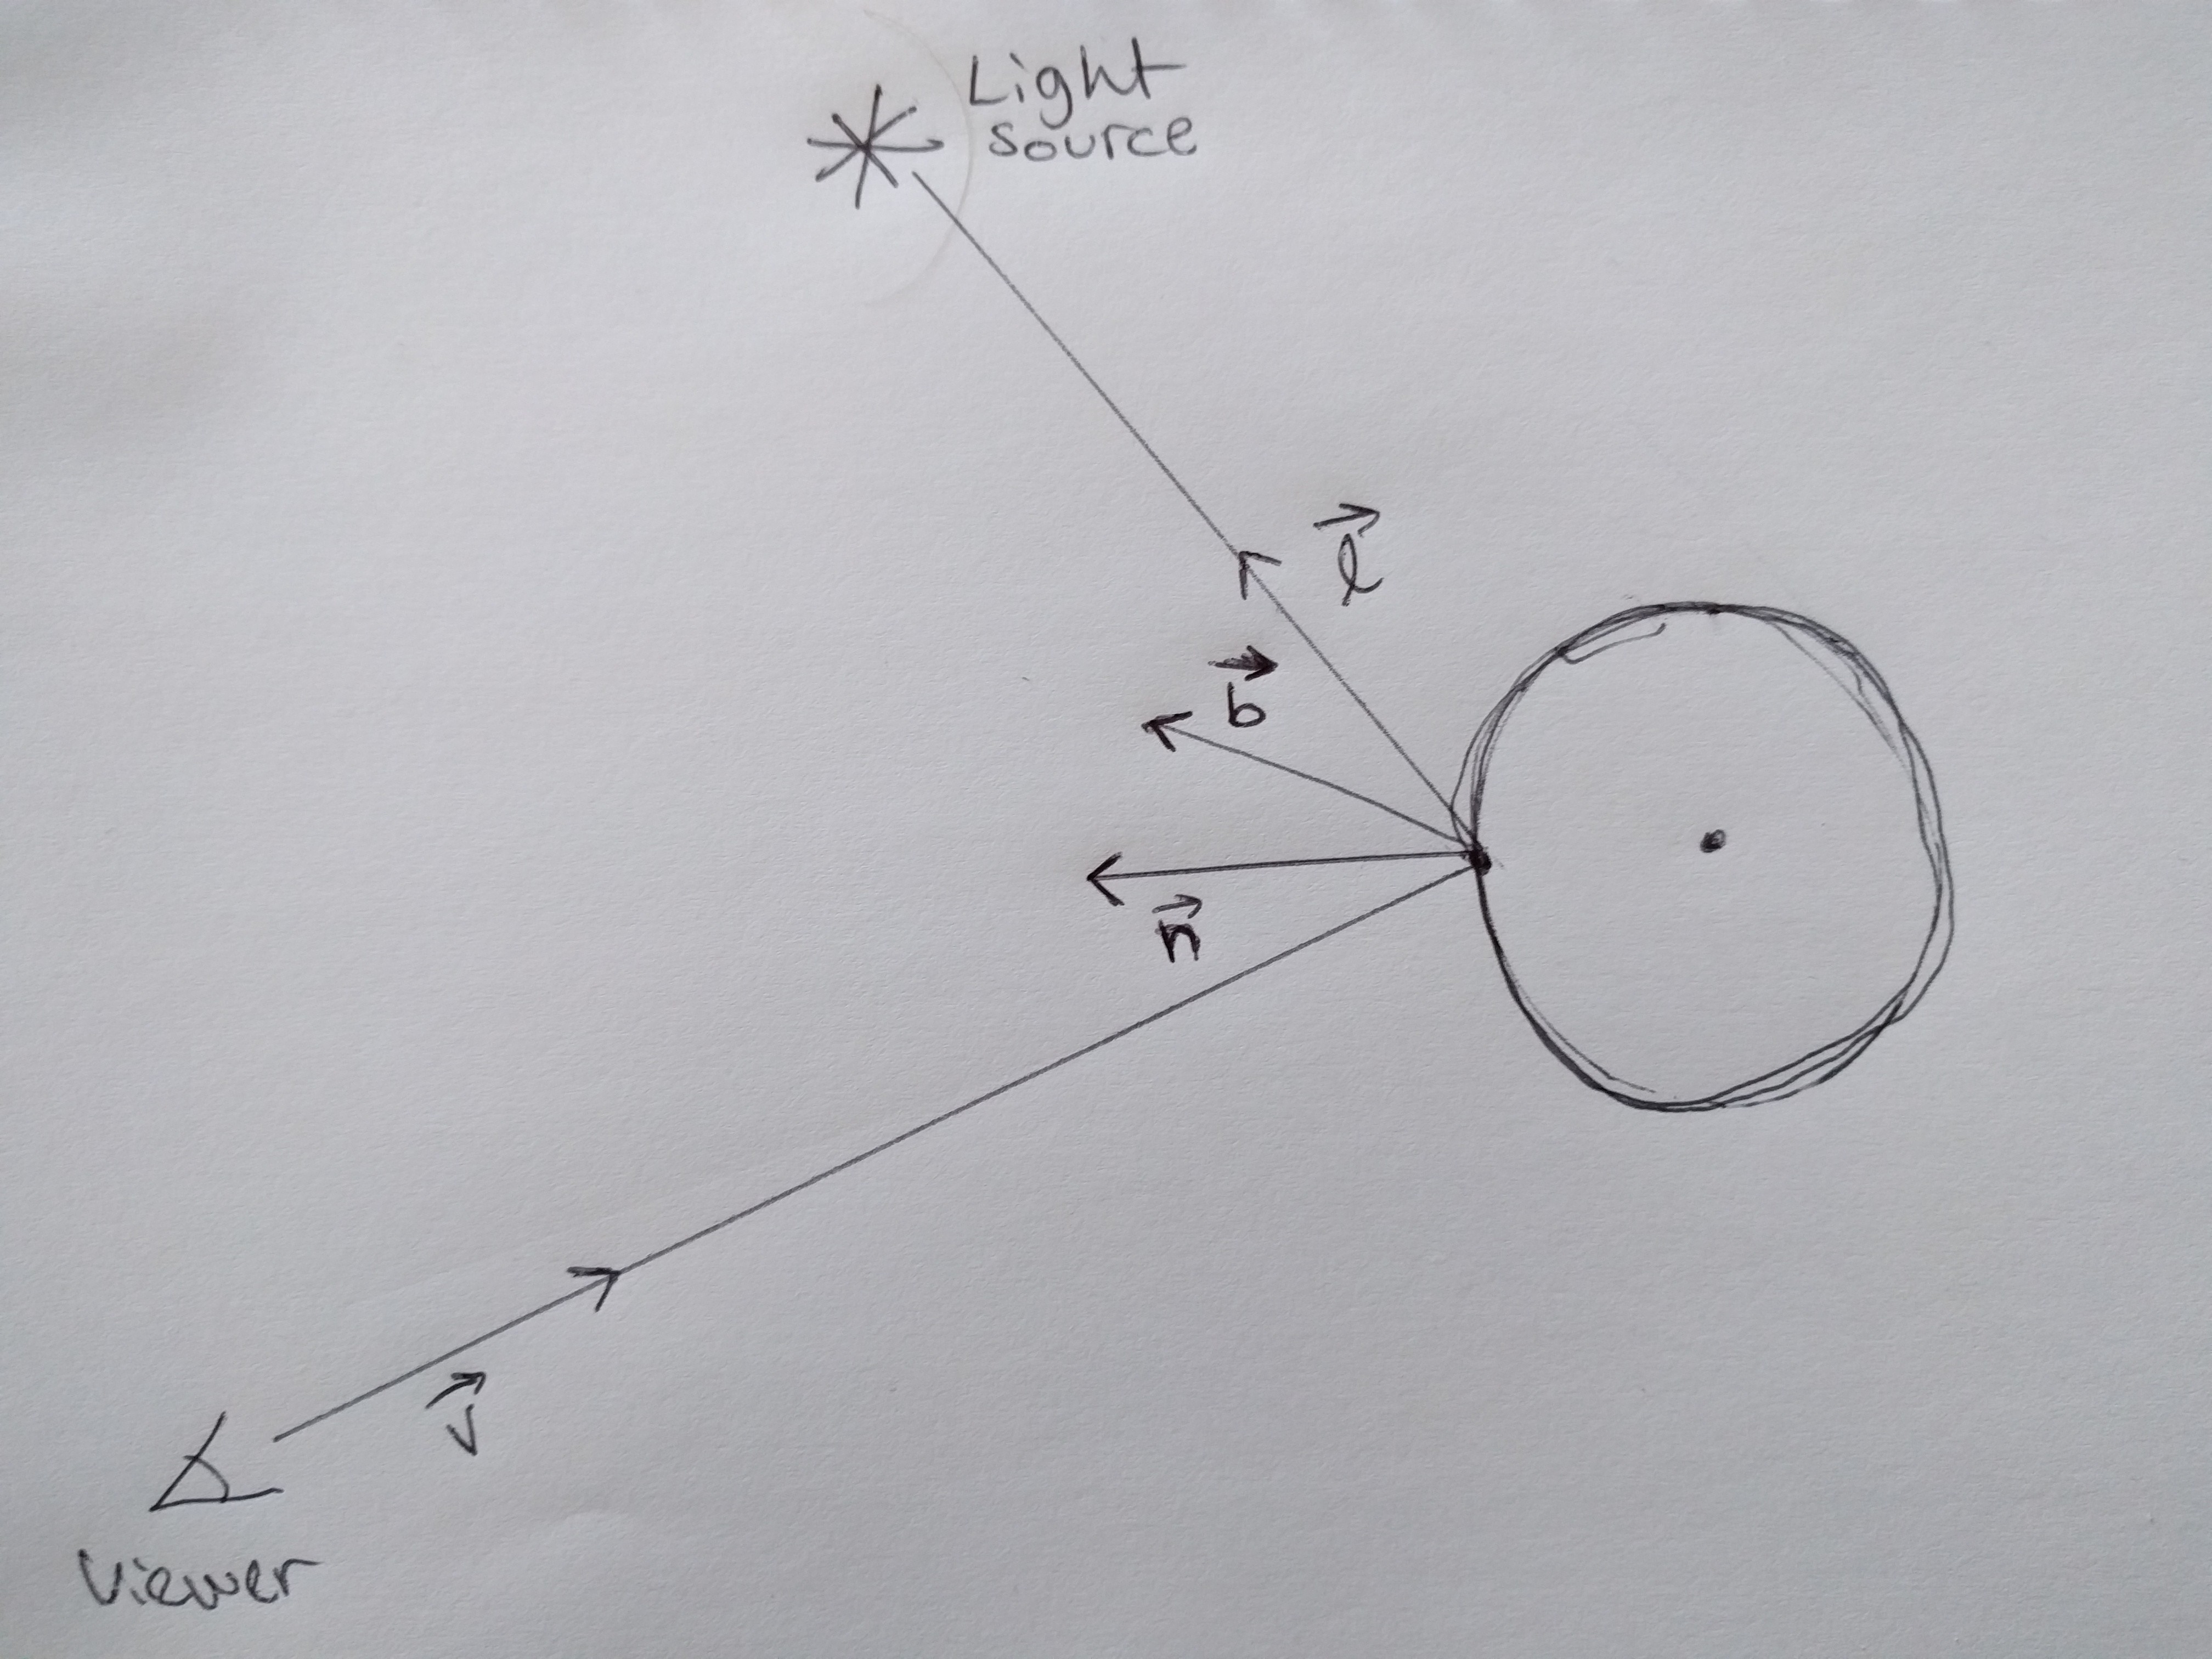 Light
source
→
ℓ
→
b
→
n
→
v
Viewer